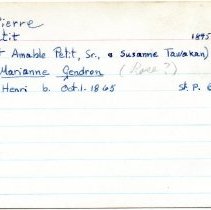 Pierre
tit 1895
t Amable Petit, Sr., & Susanne Tawakan)
Marianne Gendron (Love?)
Henri b. Oct. 1-1865 St. P.